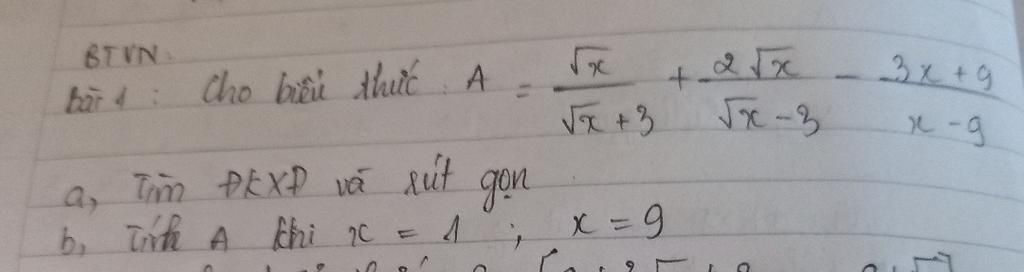 BTVN:
bài 1: Cho biểu thức A = √x/(√x + 3) + 2√x/(√x - 3) - (3x + 9)/(x - 9)
a, Tìm ĐKXĐ và rút gọn
b, Tính A khi x = 1 ; x = 9